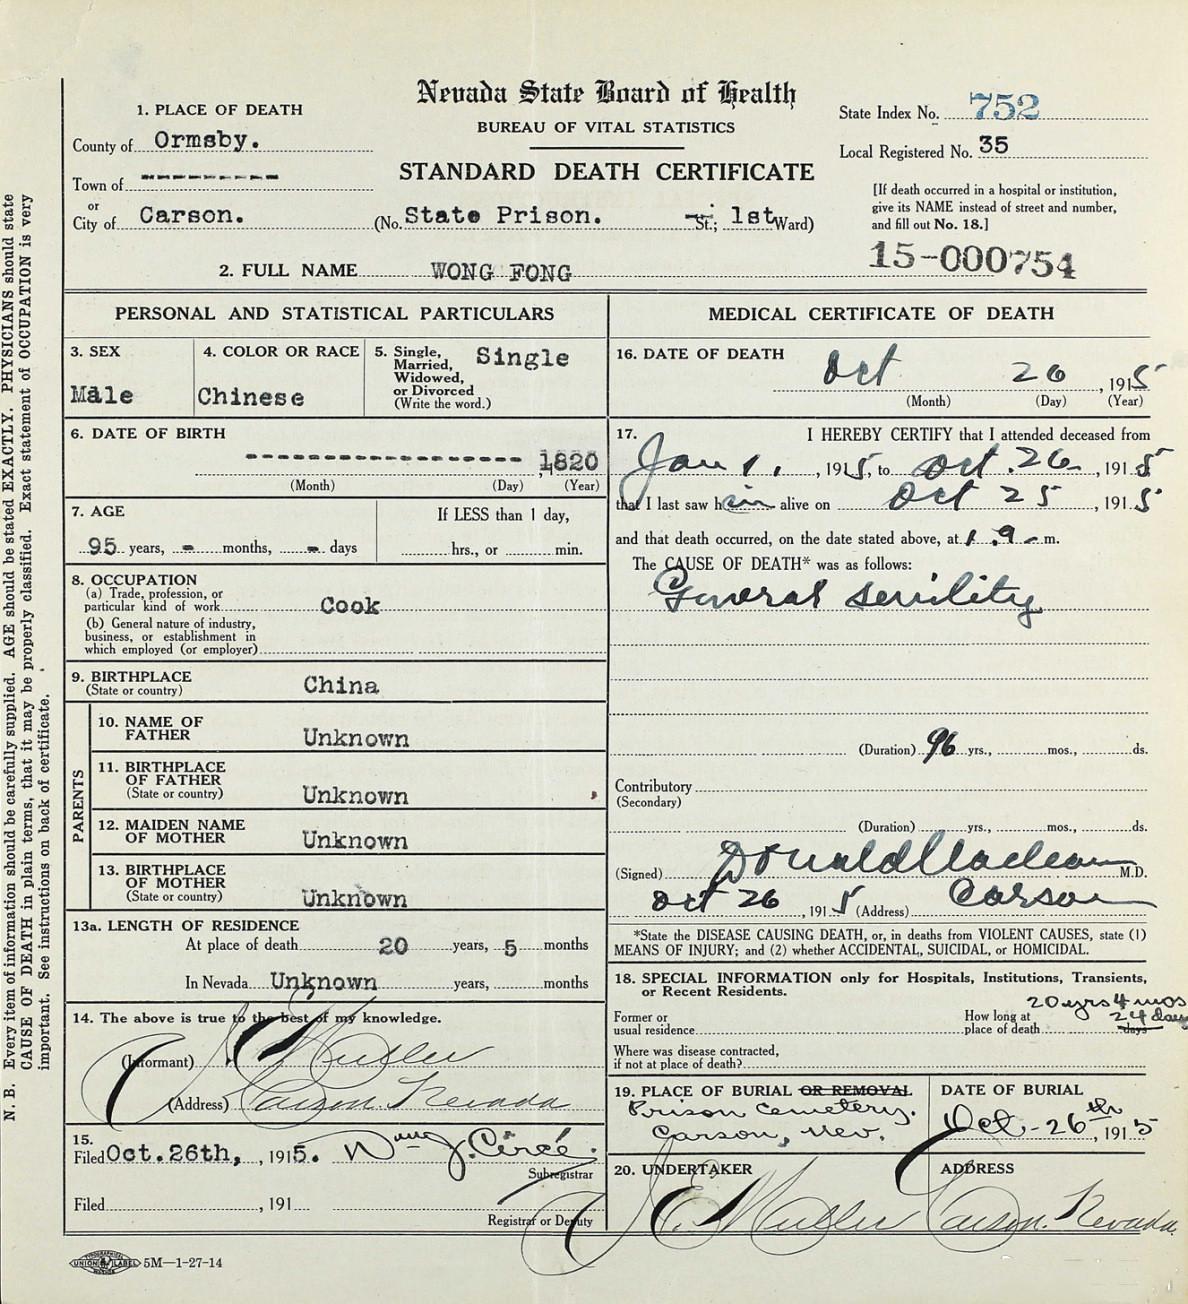 Nevada State Board of Health
BUREAU OF VITAL STATISTICS
STANDARD DEATH CERTIFICATE
State Index No. 752
Local Registered No. 35
[If death occurred in a hospital or institution,
give its NAME instead of street and number,
and fill out No. 18.]
15-000754
1. PLACE OF DEATH
County of Ormsby.
Town of ----------
or
City of Carson. (No. State Prison. St.; 1st Ward)
2. FULL NAME WONG FONG
PERSONAL AND STATISTICAL PARTICULARS
3. SEX
Male
4. COLOR OR RACE
Chinese
5. Single,
Married,
Widowed,
or Divorced
(Write the word.)
Single
6. DATE OF BIRTH
-------------------- , 1820
(Month) (Day) (Year)
7. AGE
95 years, - months, - days
If LESS than 1 day,
hrs., or min.
8. OCCUPATION
(a) Trade, profession, or
particular kind of work Cook
(b) General nature of industry,
business, or establishment in
which employed (or employer)
9. BIRTHPLACE
(State or country) China
PARENTS
10. NAME OF
FATHER Unknown
11. BIRTHPLACE
OF FATHER
(State or country) Unknown
12. MAIDEN NAME
OF MOTHER Unknown
13. BIRTHPLACE
OF MOTHER
(State or country) Unknown
13a. LENGTH OF RESIDENCE
At place of death 20 years, 5 months
In Nevada Unknown years, months
14. The above is true to the best of my knowledge.
(Informant) J E Muller
(Address) Carson. Nevada
15.
Filed Oct. 26th, , 1915.
Subregistrar
Filed , 191
Registrar or Deputy
MEDICAL CERTIFICATE OF DEATH
16. DATE OF DEATH
Oct 26 , 1915
(Month) (Day) (Year)
17. I HEREBY CERTIFY that I attended deceased from
Jan 1. , 1915, to Oct. 26 , 1915
that I last saw him alive on Oct 25 , 1915
and that death occurred, on the date stated above, at m.
The CAUSE OF DEATH* was as follows:
General senility
(Duration) 96 yrs., mos., ds.
Contributory
(Secondary)
(Duration) yrs., mos., ds.
(Signed) Donald Maclean M.D.
Oct 26 , 1915 (Address) Carson
*State the DISEASE CAUSING DEATH, or, in deaths from VIOLENT CAUSES, state (1)
MEANS OF INJURY; and (2) whether ACCIDENTAL, SUICIDAL, or HOMICIDAL.
18. SPECIAL INFORMATION only for Hospitals, Institutions, Transients,
or Recent Residents.
Former or
usual residence
How long at
place of death
20 yrs 4 mos
24 days
days
Where was disease contracted,
if not at place of death?
19. PLACE OF BURIAL OR REMOVAL
Prison Cemetery.
Carson, Nev.
DATE OF BURIAL
Oct. 26th, 1915
20. UNDERTAKER
J. E. Muller
ADDRESS
Carson. Nevada.
N. B. Every item of information should be carefully supplied. AGE should be stated EXACTLY. PHYSICIANS should state
CAUSE OF DEATH in plain terms, that it may be properly classified. Exact statement of OCCUPATION is very
important. See instructions on back of certificate.
UNION LABEL 5M—1-27-14